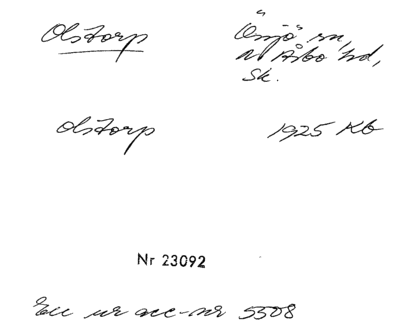 Olstorp
Össjö sn,
N Åsbo hd,
Sk.
Olstorp 1925 Kb
Nr 23092
Enl ur acc-nr 5508